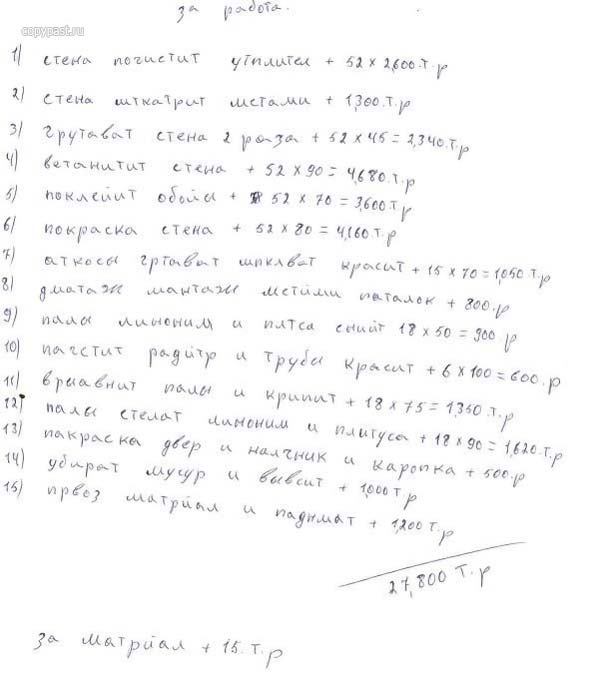 copypast.ru
за работа.
1) стена почистит утплител + 52 x 2,600.т.р
2) стена шткатрит местами + 1,300.т.р
3) грутават стена 2 раза + 52 x 45 = 2,340.т.р
4) ветанитит стена + 52 x 90 = 4,680.т.р
5) поклейит обойы + 52 x 70 = 3,600.т.р
6) покраска стена + 52 x 80 = 4,160.т.р
7) аткосы гртават шпклват красит + 15 x 70 = 1,050.т.р
8) дматаж мантажы метйми паталок + 800.р
9) палы линоним и плтса снийт 18 x 50 = 900.р
10) пагстит радйтр и трубы красит + 6 x 100 = 600.р
11) врыавнит палы и крипит + 18 x 75 = 1,350.т.р
12) палы стелат линоним и плитуса + 18 x 90 = 1,620.т.р
13) пакраска двер и налчник и каропка + 500.р
14) убират мусур и вывсит + 1,000 т.р
15) првоз матрйал и паднмат + 1,200 т.р
27,800 т.р
за матрйал + 15.т.р